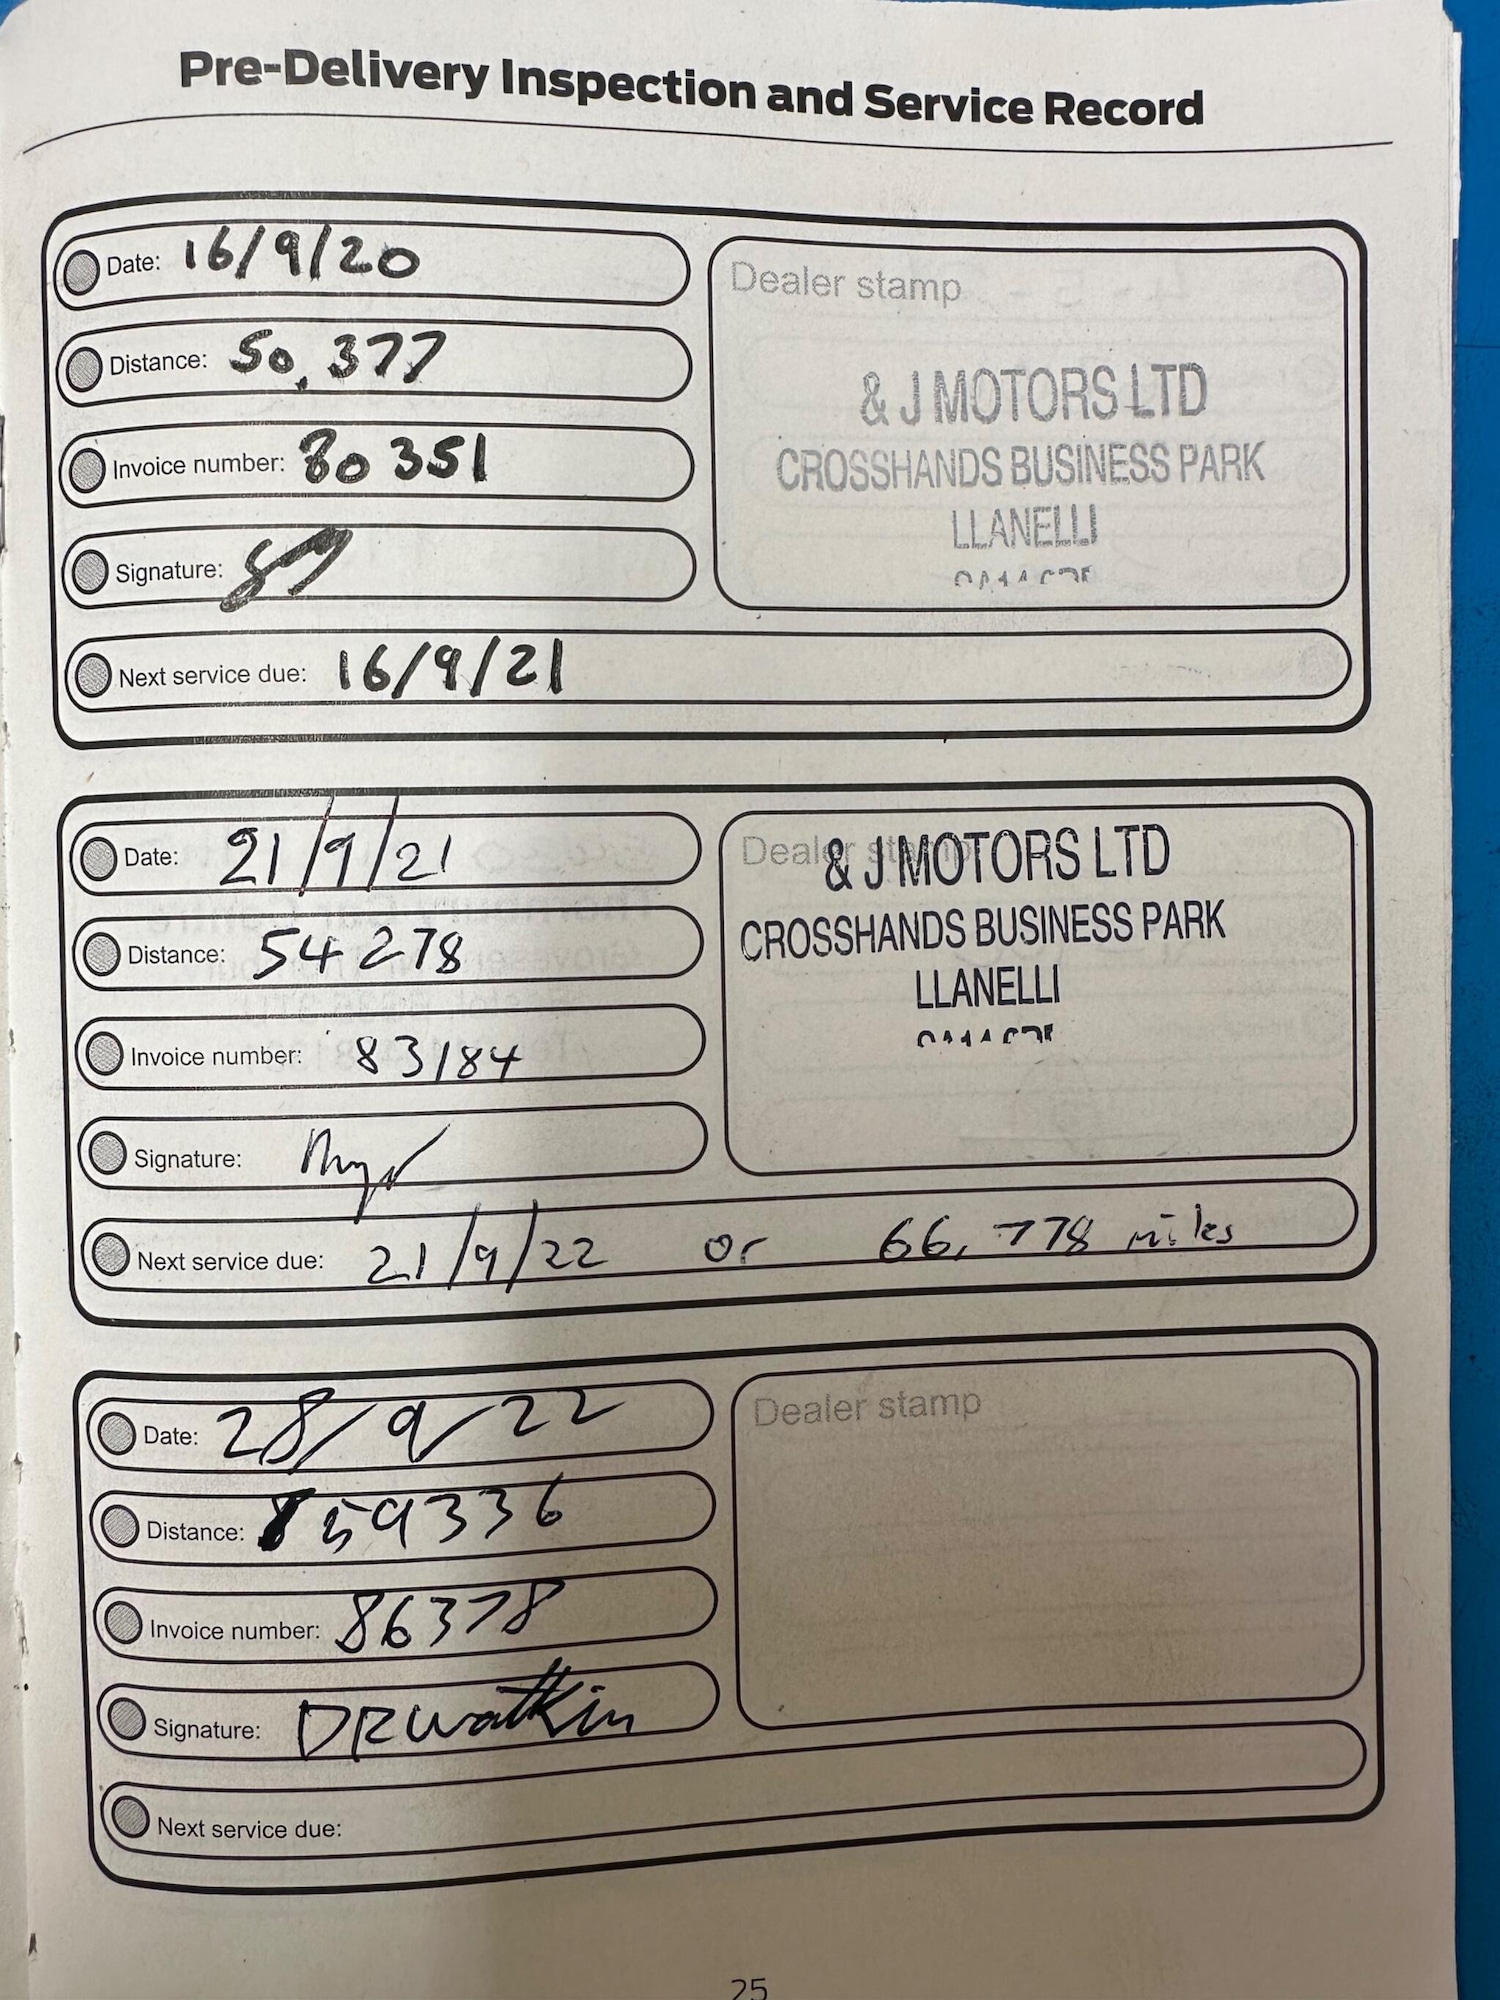 Pre-Delivery Inspection and Service Record
Date: 16/9/20
Distance: 50,377
Invoice number: 80351
Signature:
Next service due: 16/9/21
Dealer stamp
& J MOTORS LTD
CROSSHANDS BUSINESS PARK
LLANELLI
Date: 21/9/21
Distance: 54278
Invoice number: 83184
Signature:
Next service due: 21/9/22 or 66,778 miles
Dealer stamp
& J MOTORS LTD
CROSSHANDS BUSINESS PARK
LLANELLI
Date: 28/9/22
Distance: 59336
Invoice number: 86378
Signature: DRWatkin
Next service due:
Dealer stamp
25